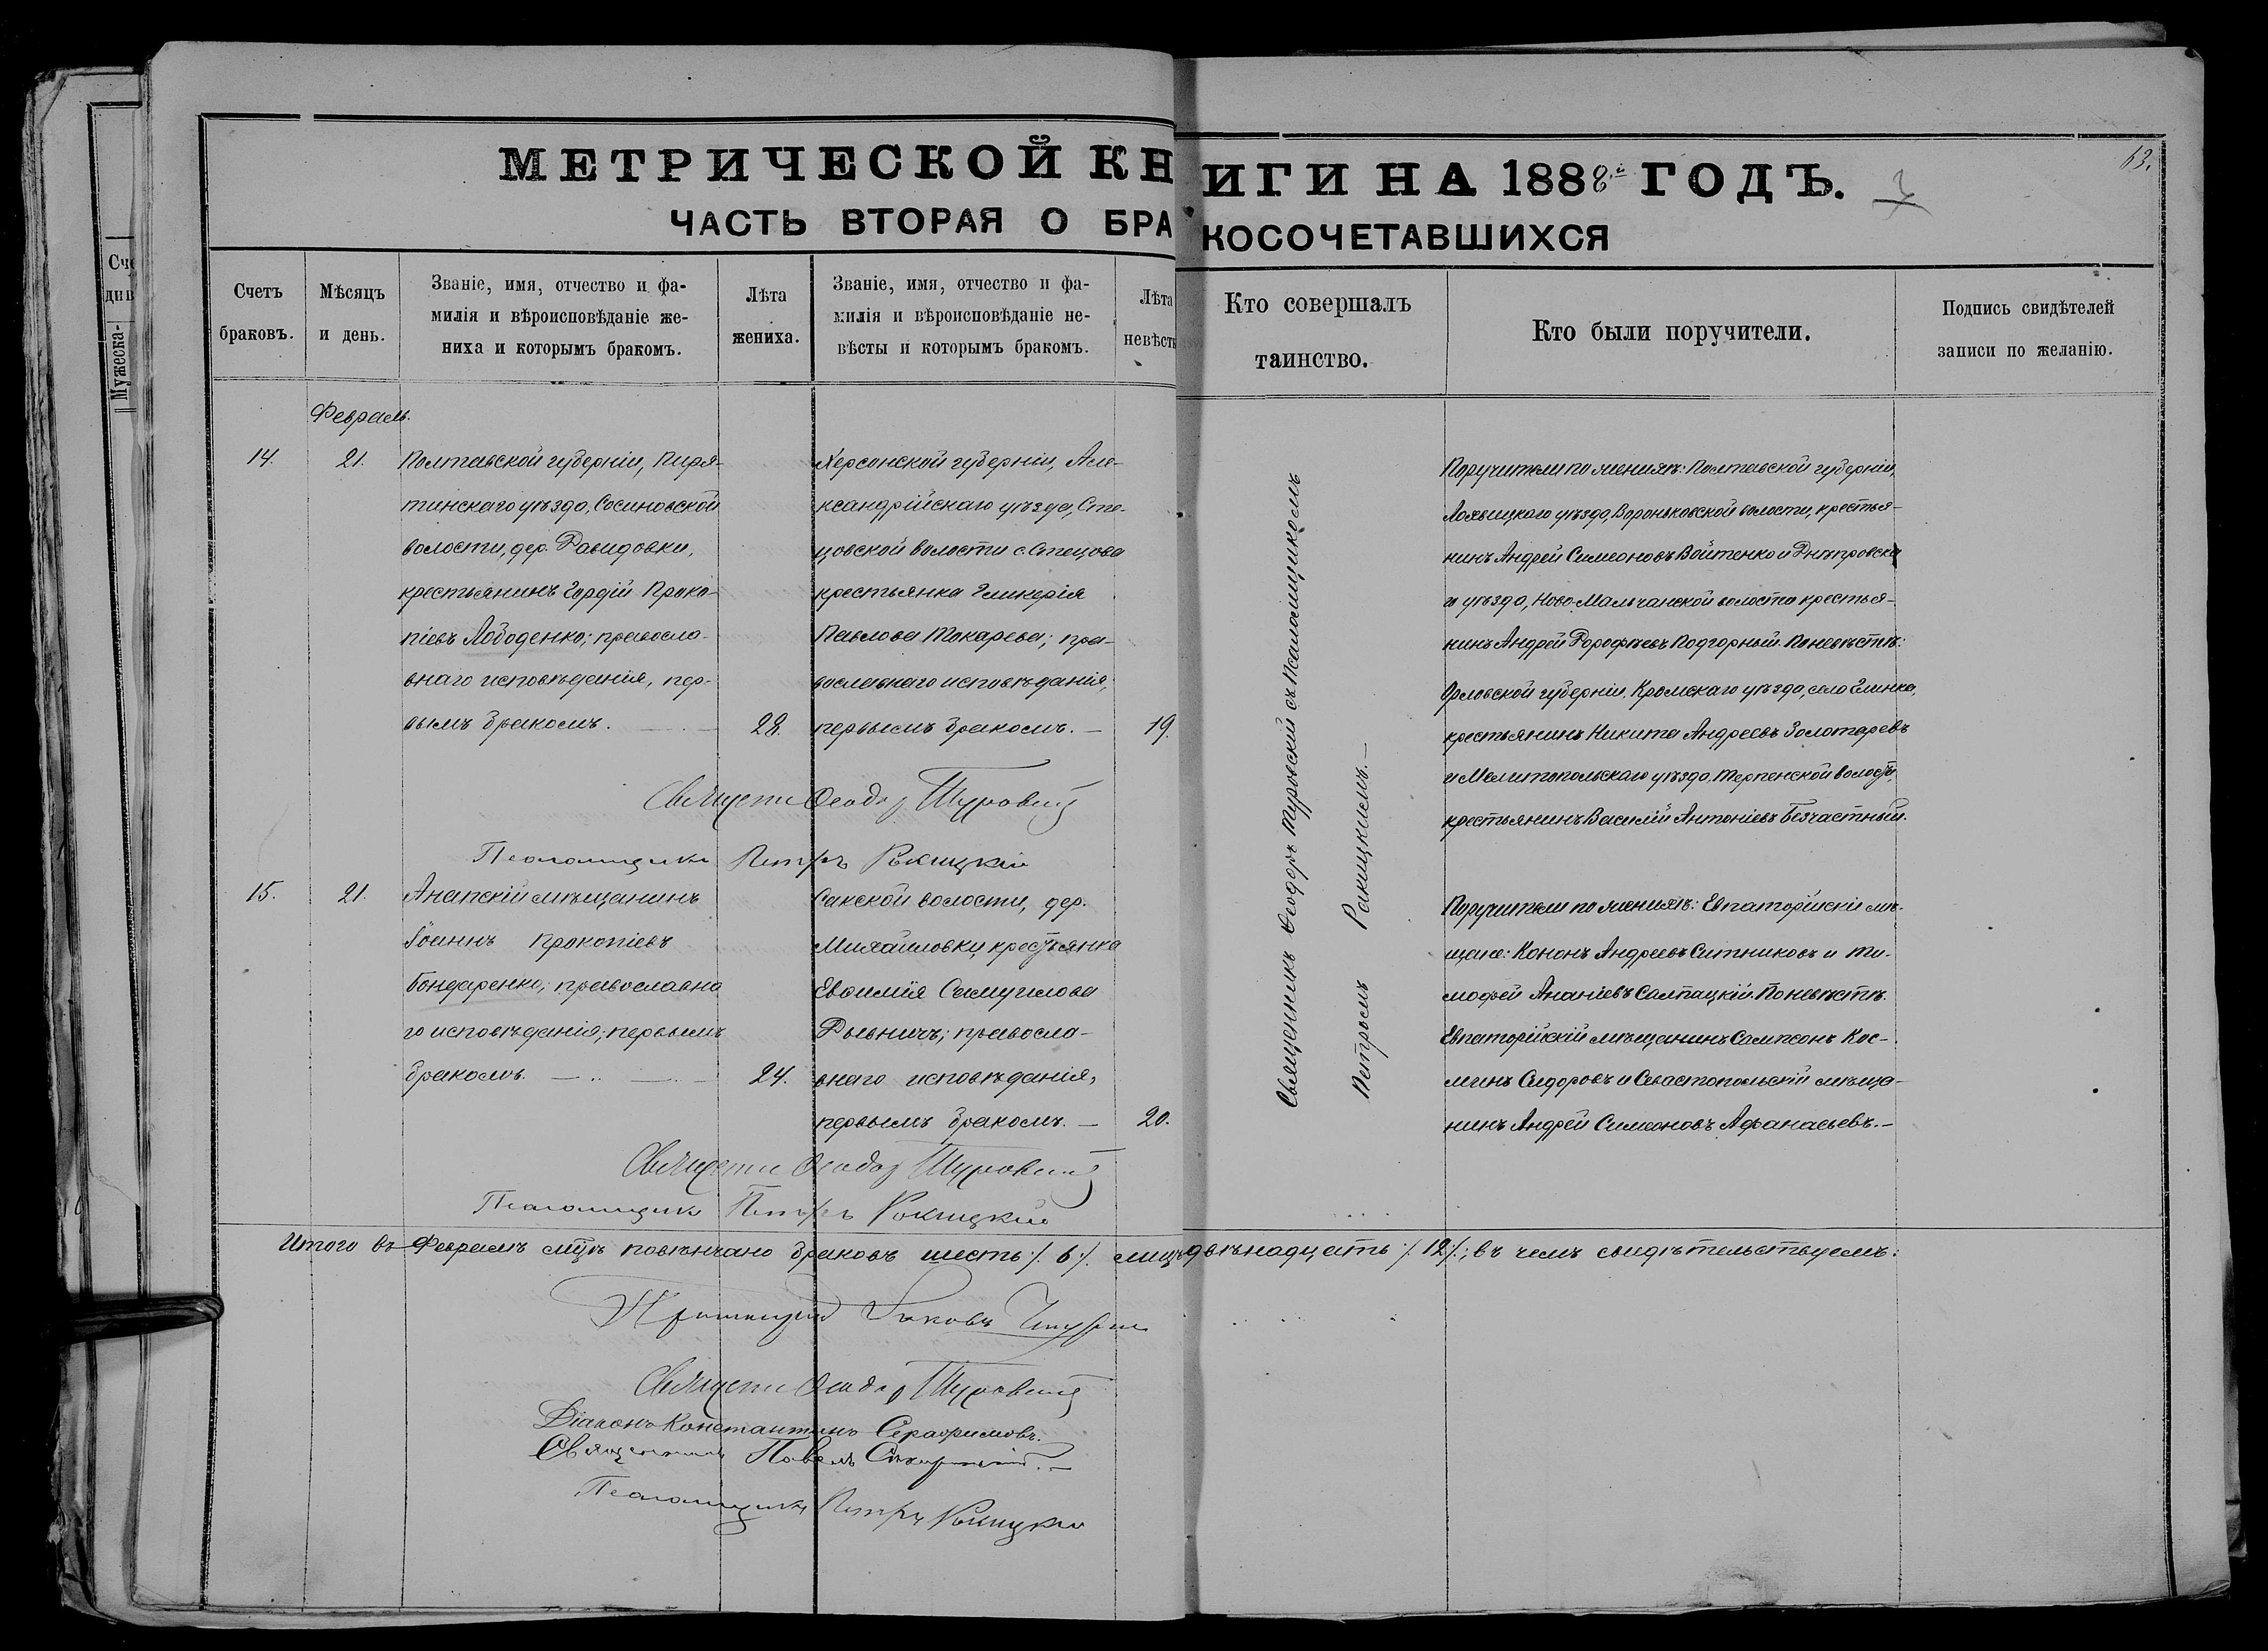 Сче
див
Мужеска-
МЕТРИЧЕСКОЙ КНИГИ НА 1888й ГОДЪ.
63.
ЧАСТЬ ВТОРАЯ О БРАКОСОЧЕТАВШИХСЯ
Счетъ
браковъ.
Мѣсяцъ
и день.
Званіе, имя, отчество и фа-
милія и вѣроисповѣданіе же-
ниха и которымъ бракомъ.
Лѣта
жениха.
Званіе, имя, отчество и фа-
милія и вѣроисповѣданіе не-
вѣсты и которымъ бракомъ.
Лѣта
невѣсты
Кто совершалъ
таинство.
Кто были поручители.
Подпись свидѣтелей
записи по желанію.
Февраль.
14.
21.
Полтавской губерніи, Пиря-
тинскаго уѣзда, Сосиновской
волости, дер. Давидовки,
крестьянинъ Гордій Проко-
піевъ Лободенко; правосла-
внаго исповѣданія, пер-
вымъ бракомъ.
28.
Херсонской губерніи, Але-
ксандрійскаго уѣзда, Сте-
цовской волости с. Стецова
крестьянка Гликерія
Павлова Токарева; пра-
вославнаго исповѣданія,
первымъ бракомъ. —
19.
Священникъ Ѳеодоръ Туровскій съ псаломщикомъ
Петромъ Ракицкимъ. —
Поручители по женихѣ: Полтавской губерніи,
Лохвицкаго уѣзда, Вороньковской волости, крестья-
нинъ Андрей Симеоновъ Войтенко и Днѣпровска
го уѣзда, Ново-Мальчанской волости крестья-
нинъ Андрей Дорофѣевъ Подгорный. По невѣстѣ:
Орловской губерніи, Кромскаго уѣзда, села Глинка,
крестьянинъ Никита Андреевъ Золотаревъ
и Мелитопольскаго уѣзда, Терпенской волости,
крестьянинъ Василій Антоніевъ Безчастный.
Священн Ѳеодор Туровскій
Псаломщикъ Петръ Ракицкій
15.
21.
Анапскій мѣщанинъ
Іоаннъ Прокопіевъ
Бондаренко; православна
го исповѣданія; первымъ
бракомъ.
24.
Сакской волости, дер.
Михайловки, крестьянка
Евѳимія Самуилова
Рывничъ; правосла-
внаго исповѣданія,
первымъ бракомъ. —
20.
Поручители по женихѣ: Евпаторійскіе мѣ-
щане: Кононъ Андреевъ Ситниковъ и Ти-
мофей Ананіевъ Салтацкій. По невѣстѣ:
Евпаторійскій мѣщанинъ Сампсонъ Кос-
минъ Сидоровъ и Севастопольскій мѣща-
нинъ Андрей Симеоновъ Афанасьевъ. —
Священн Ѳеодор Туровскій
Псаломщикъ Петръ Ракицкій
Итого въ Февралѣ мцѣ повѣнчано браковъ шесть /. 6 /. лицъ двѣнадцать /. 12 /.; въ чемъ свидѣтельствуемъ:
Яковъ
Священн Ѳеодор Туровскій
Діаконъ Константинъ Серафимовъ.
Священникъ Павелъ
Псаломщикъ Петръ Ракицкій